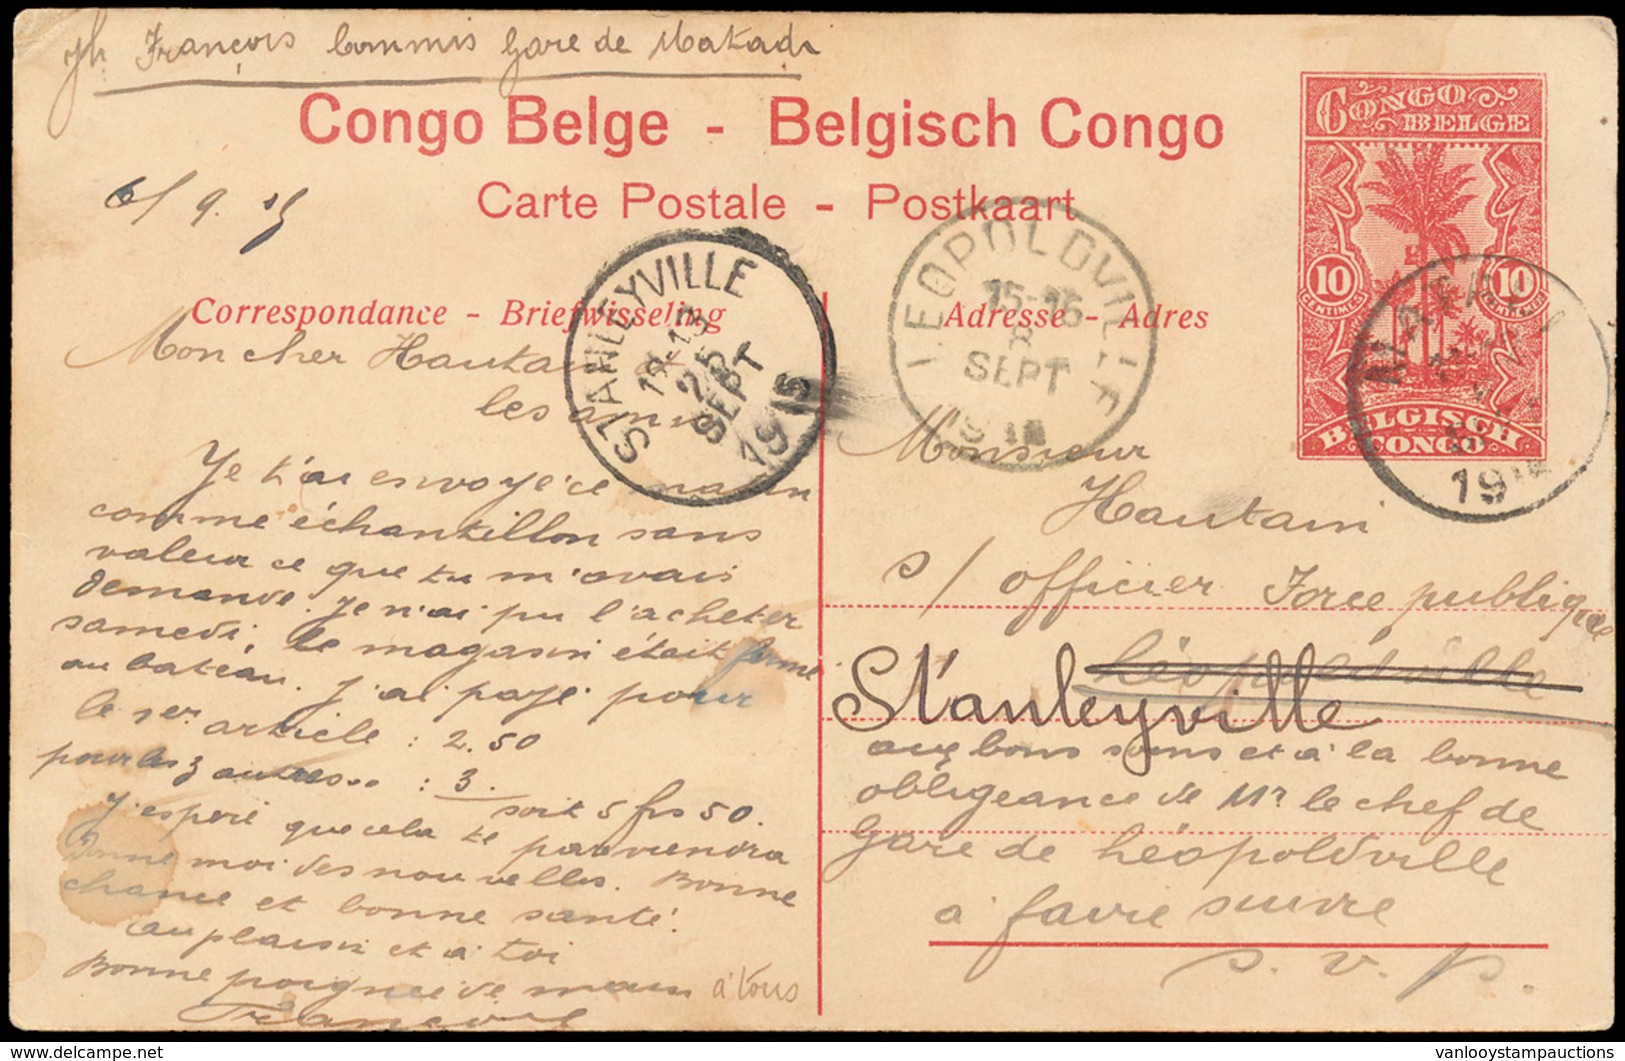 Jh François Commis Gare de Matadi
Congo Belge - Belgisch Congo
Carte Postale - Postkaart
6/9.15
CONGO
BELGE
10 10
CENTIMES CENTIMEN
BELGISCH
CONGO
STANLEYVILLE
25
SEPT
1915
LEOPOLDVILLE
15-16
8
SEPT
19
MATADI
19
Correspondance - Briefwisseling
Adresse - Adres
Mon cher Hautain et
les amis
Je t'ai envoyé ce matin
comme échantillon sans
valeur ce que tu m'avais
demandé. Je n'ai pu l'acheter
samedi, le magasin était fermé
au bateau. J'ai payé pour
le 1er article : 2.50
pour les 3 autres... : 3.
soit 5 frs 50.
J'espère que cela te parviendra
Donne moi des nouvelles. Bonne
chance et bonne santé.
au plaisir et à toi
Bonne poignée de main à tous
François
Monsieur
Hautain
s/officier Force publique
Léopoldville
Stanleyville
aux bons soins et à la bonne
obligeance de Mr le chef de
gare de Léopoldville
à faire suivre
s. v. p.
vanlooystampauctions